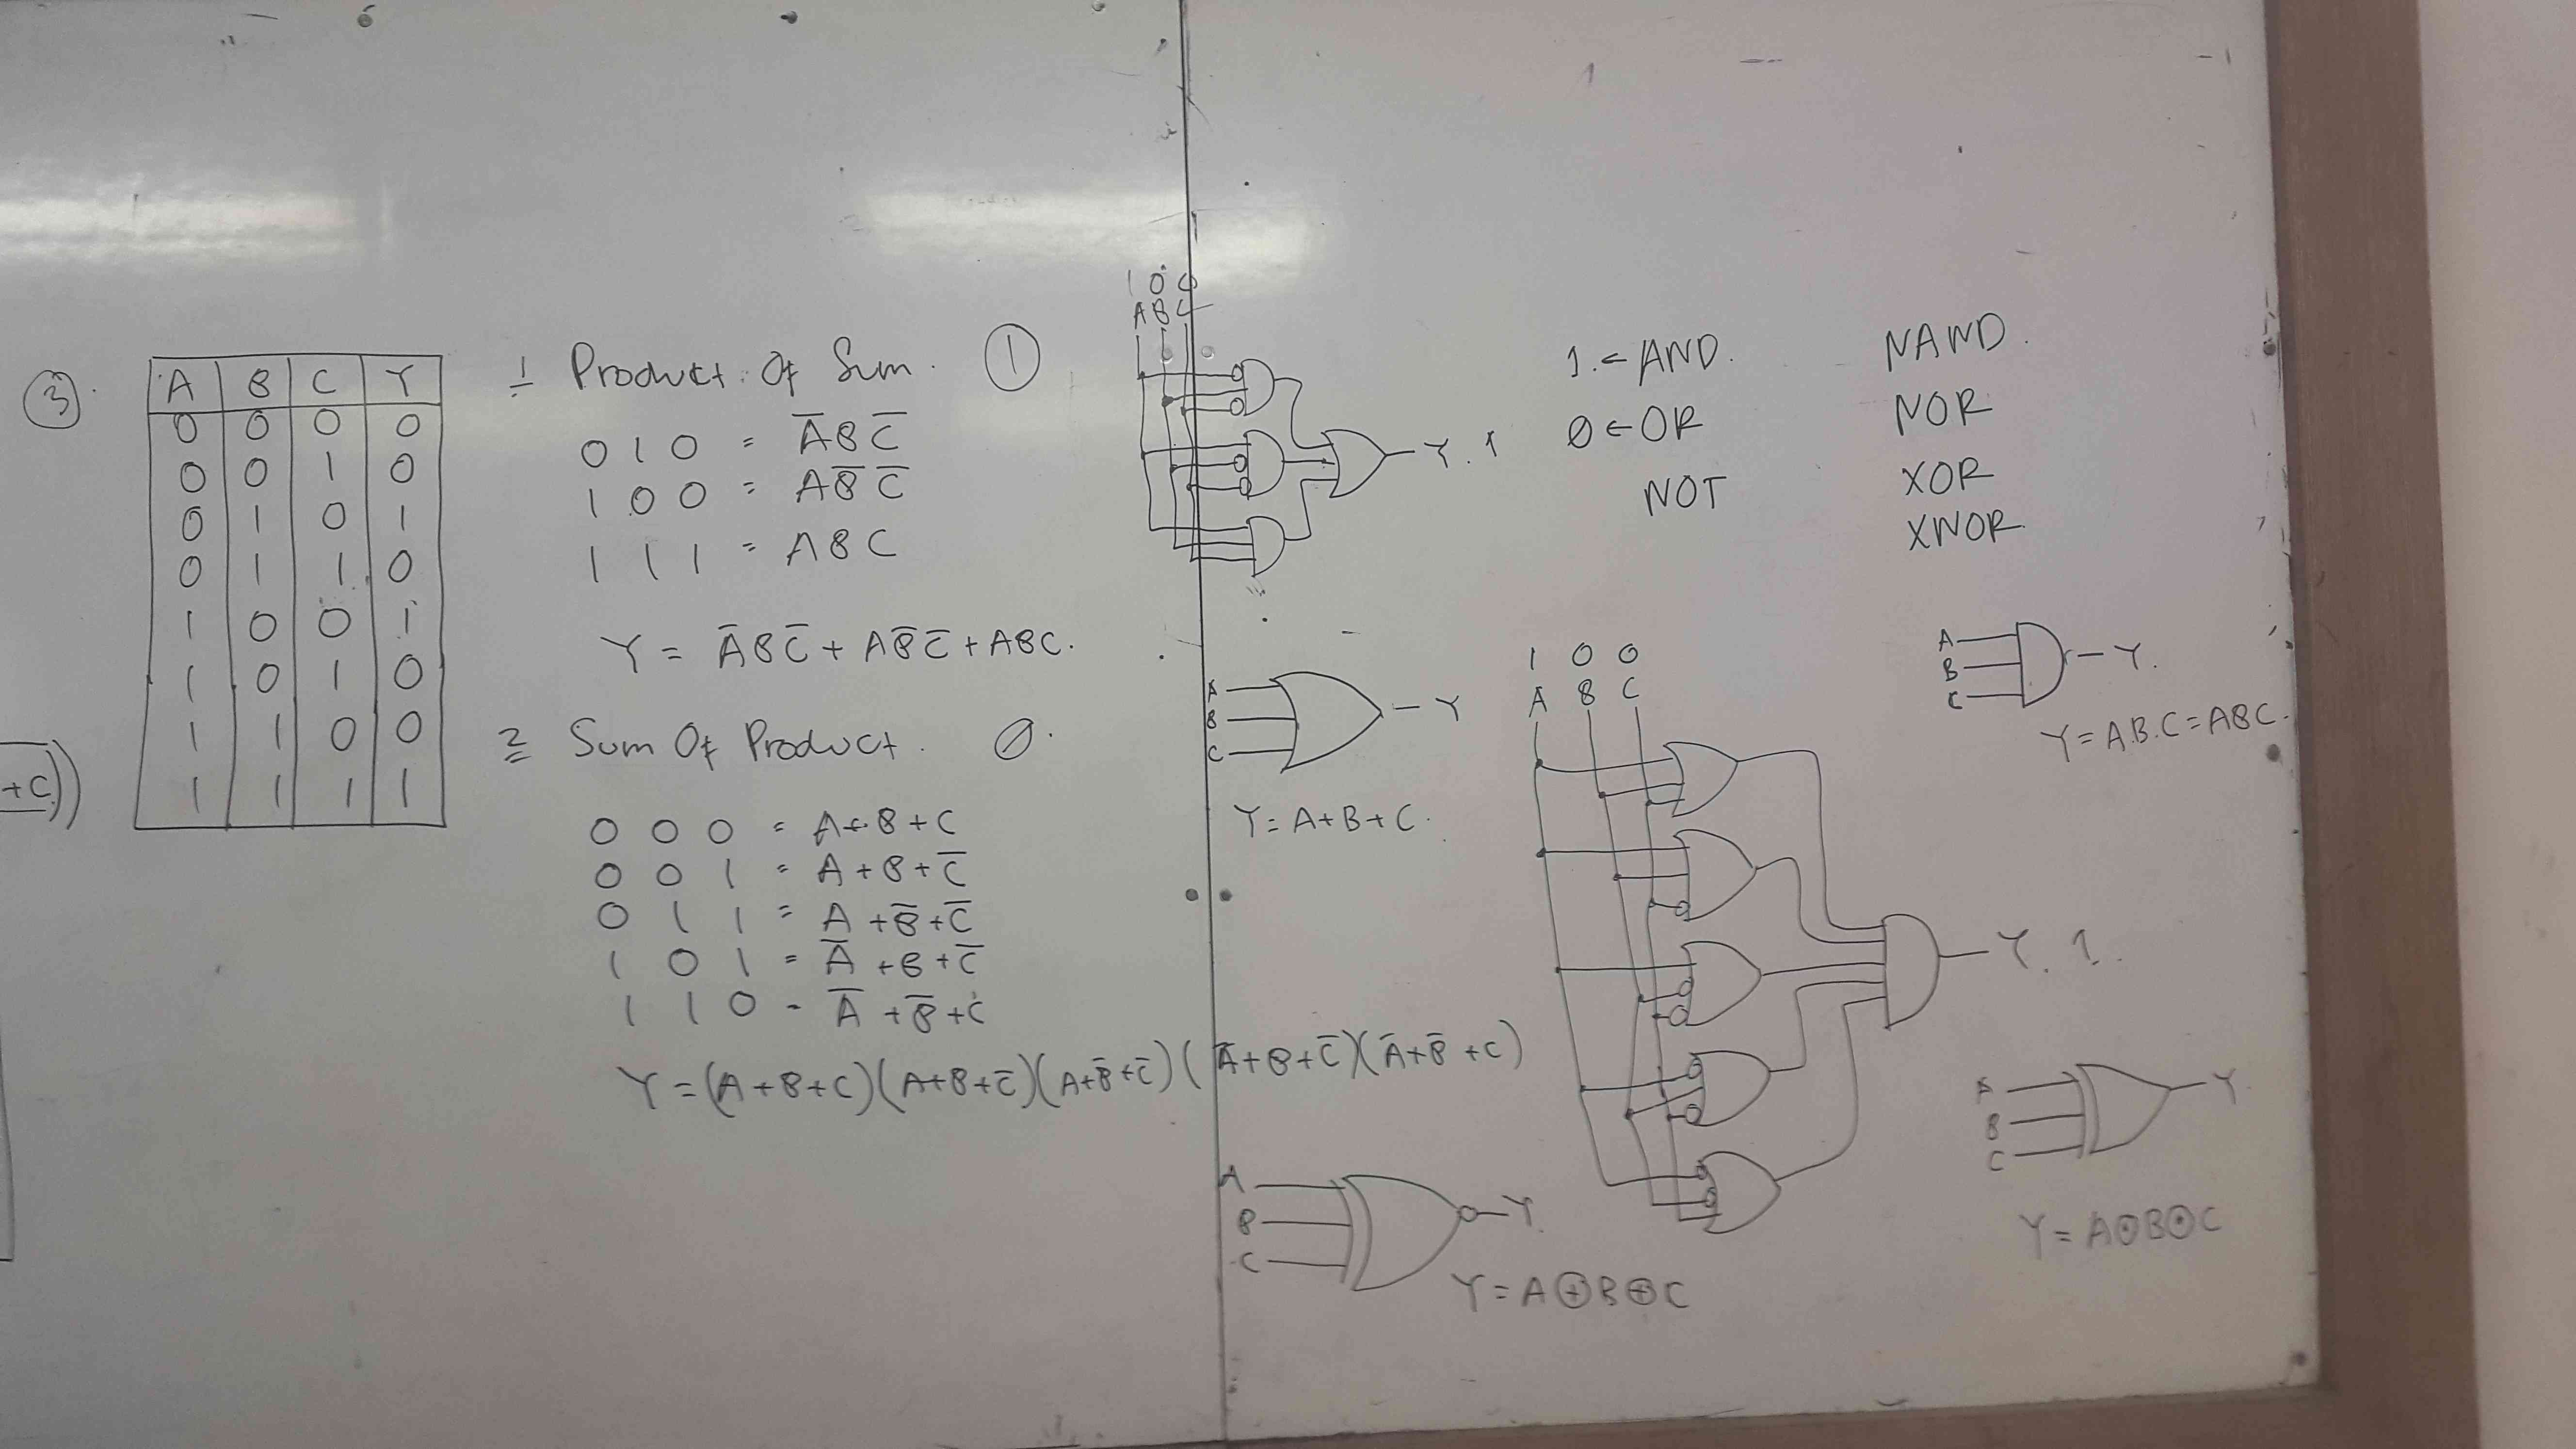 ③.
A B C Y
0 0 0 0
0 0 1 0
0 1 0 1
0 1 1 0
1 0 0 1
1 0 1 0
1 1 0 0
1 1 1 1
+C))
1 Product Of Sum. ①
0 1 0 = A̅BC̅
1 0 0 = AB̅C̅
1 1 1 = ABC
Y = A̅BC̅ + AB̅C̅ + ABC.
2 Sum Of Product. 0.
0 0 0 = A+B+C
0 0 1 = A+B+C̅
0 1 1 = A+B̅+C̅
1 0 1 = A̅+B+C̅
1 1 0 = A̅+B̅+C
Y = (A+B+C)(A+B+C̅)(A+B̅+C̅)(A̅+B+C̅)(A̅+B̅+C)
1 0 0
A B C
Y. 1
1. ← AND.
0 ← OR
NOT
NAND.
NOR
XOR
XNOR.
A
B
C
Y
Y = A+B+C.
1 0 0
A B C
Y. 1.
A
B
C
Y.
Y = A.B.C = ABC.
A
B
C
Y.
Y = A⊕B⊕C
A
B
C
Y.
Y = A⊙B⊙C